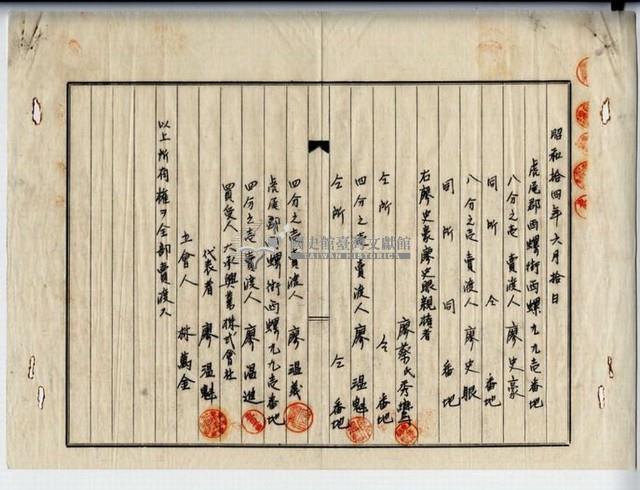 昭和拾四年六月拾日
虎尾郡西螺街西螺九九壱番地
八分之壱 賣渡人 廖史豪
同所 仝番地
八分之壱 賣渡人 廖史眼
同所 同番地
右廖史豪廖史眼親權者
廖蔡氏秀鸞
仝所 仝番地
四分之壱賣渡人 廖温魁
仝所 仝番地
四分之壱賣渡人 廖温義
虎尾郡西螺街西螺九九壱番地
四分之壱賣渡人 廖温進
買受人 大承興業株式會社
代表者 廖温魁
立會人 林萬金
以上所有權ヲ全部賣渡ス
國史館臺灣文獻館
TAIWAN HISTORICA